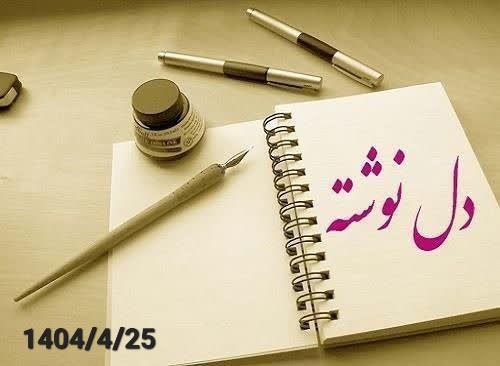 دل نوشته
1404/4/25